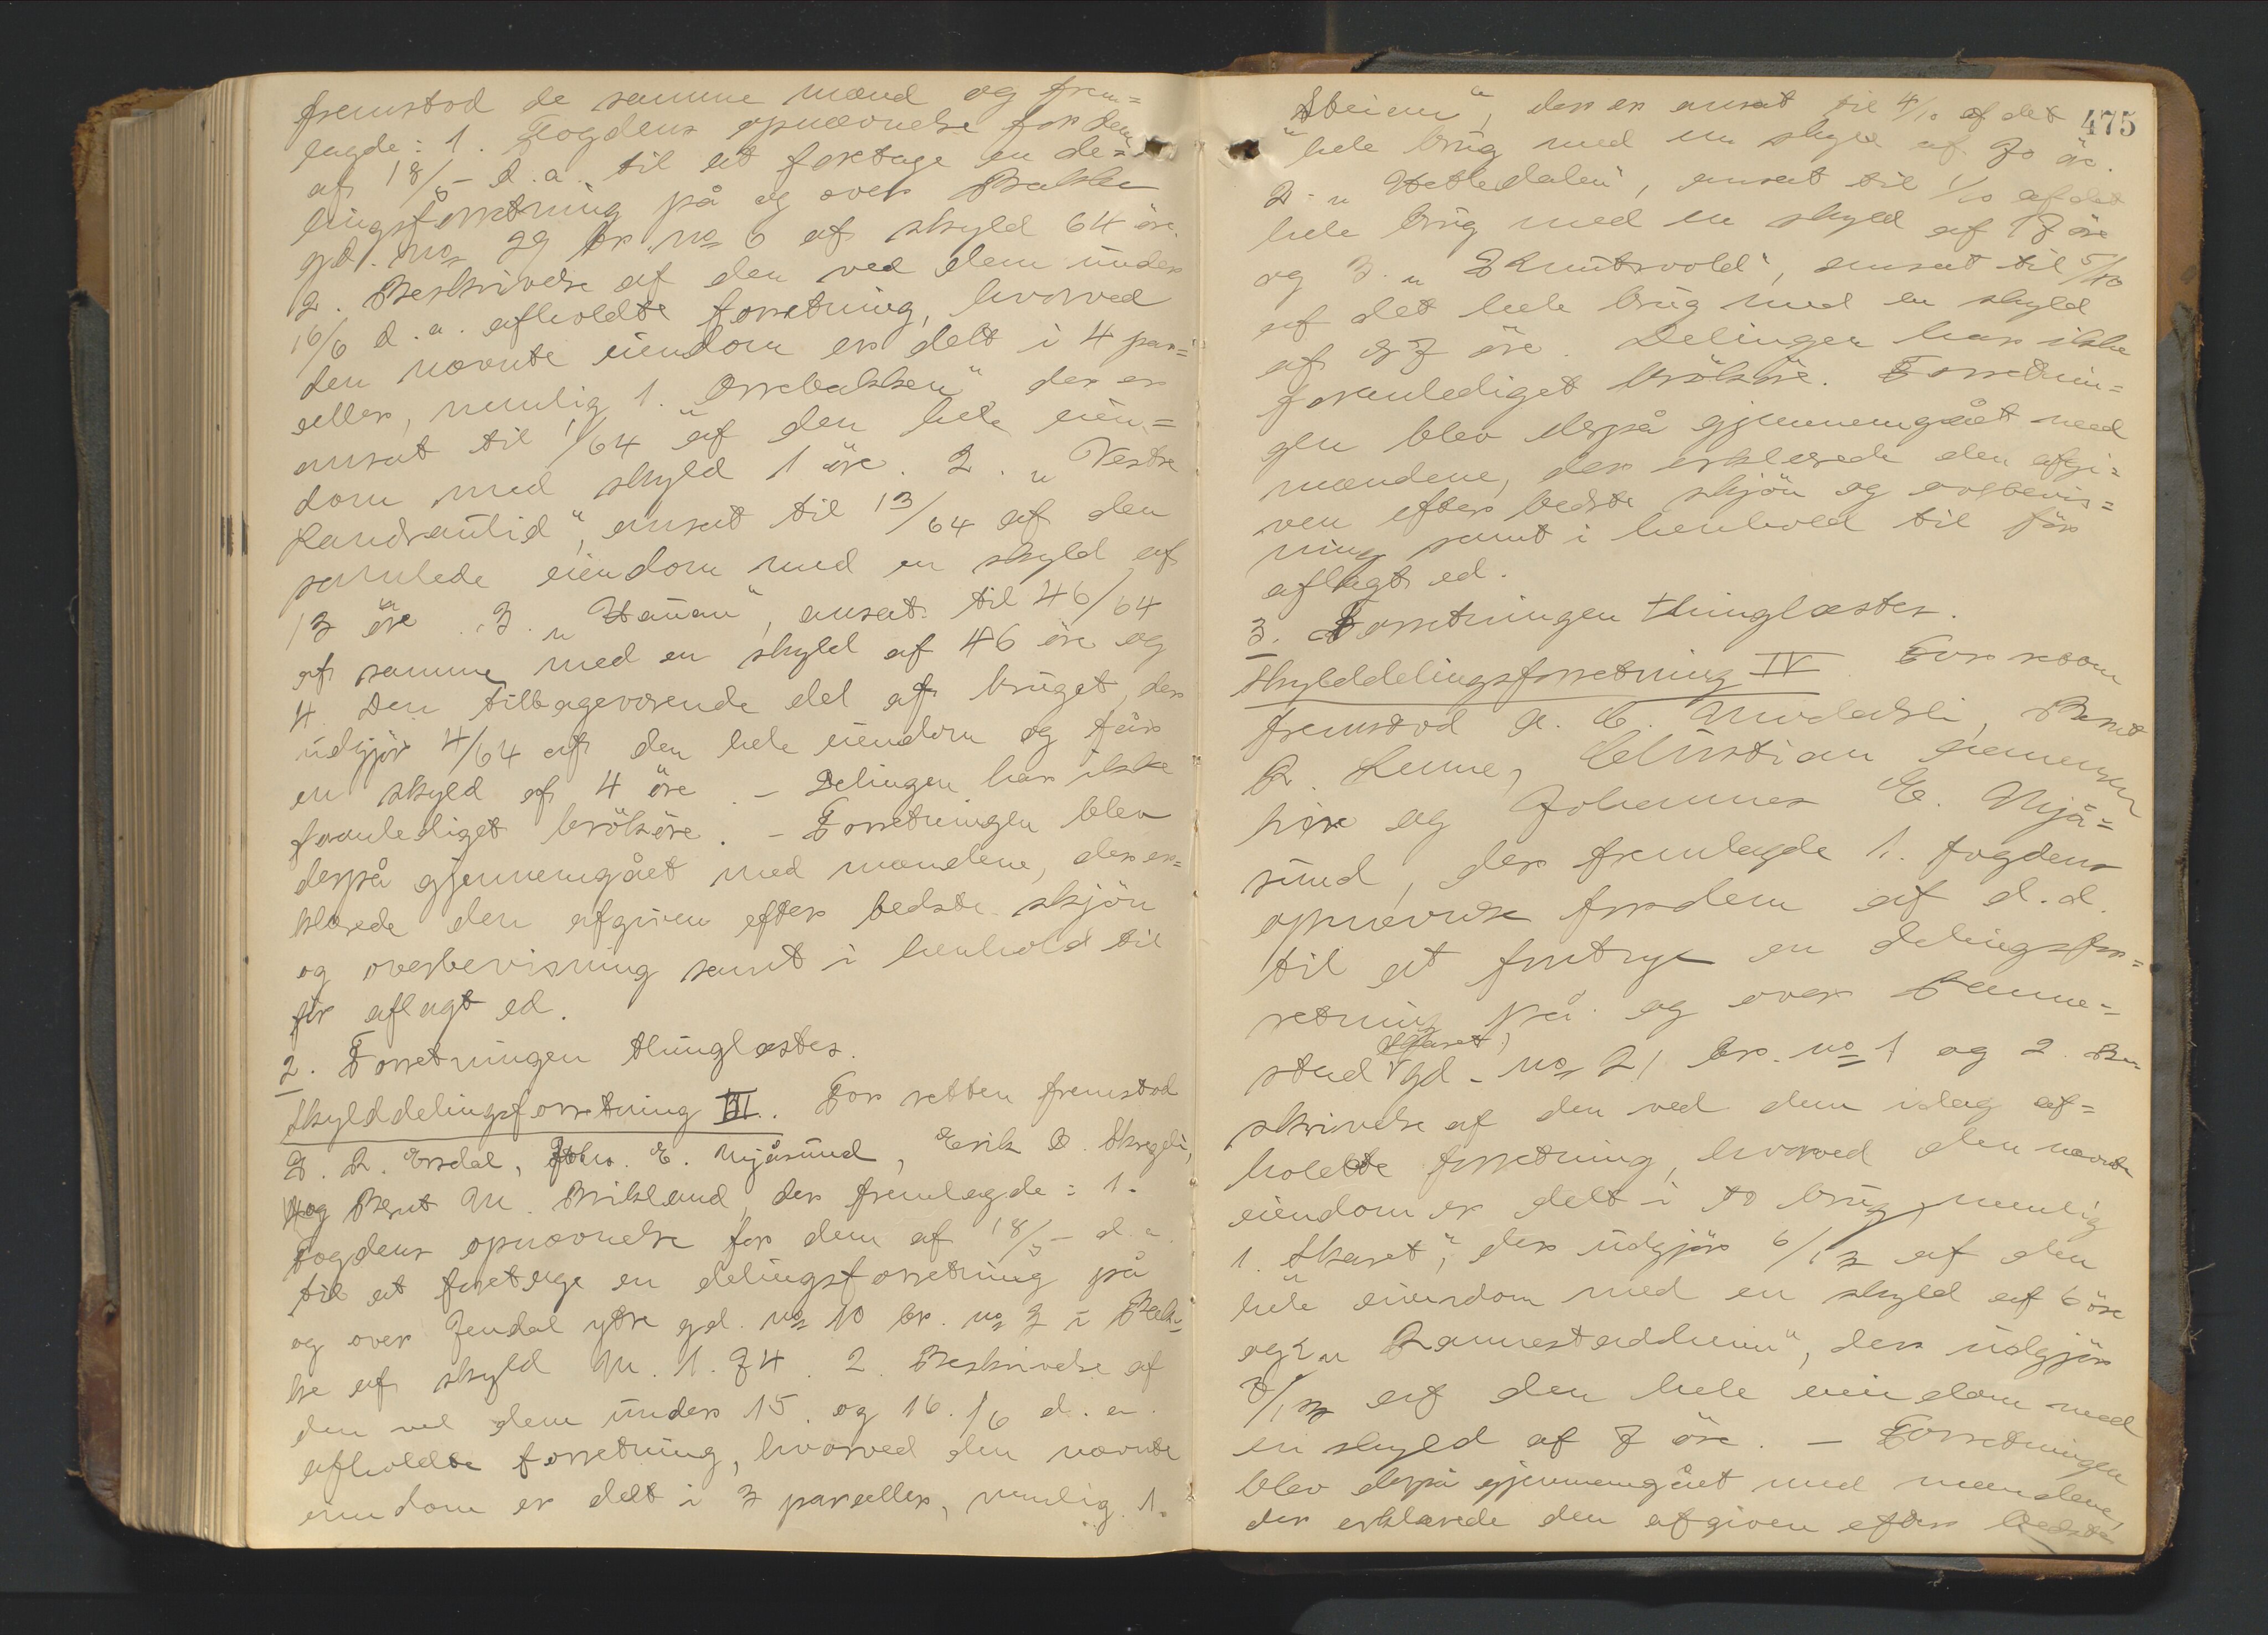 fremstod de samme mænd og frem=
lagde: 1. Fogdens opnævnelse for dem
af 18/5 d. a. til at foretage en de=
lingsforretning på og over Bakken
gd. no 29 br. no 6 af skyld 64 öre.
2. Beskrivelse af den ved dem under
16/6 d. a. afholdte forretning, hvorved
den nævnte eiendom er delt i 4 par=
celler, nemlig 1. "Orrebakken" der er
ansat til 1/64 af den hele eien=
dom med skyld 1 öre. 2. "Vestre
Landsantlid", ansat til 13/64 af den
samlede eiendom med en skyld af
13 öre. 3. "Hauan", ansat til 46/64
af samme med en skyld af 46 öre og
4. Den tilbageværende del af bruget, der
udgjör 4/64 af den hele eiendom og får
en skyld af 4 öre. - Delingen har ikke
foranlediget brököre. - Forretningen blev
derpå gjennemgået med mændene, der er=
klærede den afgiven efter bedste skjön
og overbevisning samt i henhold til
för aflagt ed.
2. Forretningen thinglæstes.
Skylddelingsforretning III. For retten fremstod
T. R. Ersdal, Johs. E. Mjåsund, Erik B. Skregeli,
og Bent M. Birkland, der fremlagde: 1.
Fogdens opnævnelse for dem af 18/5 d. a.
til at foretage en delingsforretning på
og over Jendal ytre gd. no 10 br. no 3 i Bak=
ke af skyld M. 1.74. 2. Beskrivelse af
den ved dem under 15. og 16./6 d. a.
afholdte forretning, hvorved den nævnte
eiendom er delt i 3 parceller, nemlig 1.
475
"Steien", der er ansat til 4/10 af det
hele brug med en skyld af 70 öre.
2. "Hetledalen", ansat til 1/10 af det
hele brug med en skyld af 17 öre
og 3. "Knutsvold", ansat til 5/10
af det hele brug med en skyld
af 87 öre. Delingen har ikke
foranlediget brököre. Forretnin=
gen blev derpå gjennemgået med
mændene, der erklærede den afgi=
ven efter bedste skjön og overbevis=
ning samt i henhold til för
aflagt ed.
3. Forretningen thinglæstes.
Skylddelingsforretning IV. For retten
fremstod A. C. Modalsli, Bernt
R. Lunne, Christian
og Johannes E. Mjå=
sund, der fremlagde 1. fogdens
opnævnelse for dem af d. d.
til at foretage en delingsfor=
retning på og over Ranne=
stad Skaret, gd. no 21 br. no 1 og 2. Be=
skrivelse af den ved dem idag af=
holdte forretning, hvorved den nævnte
eiendom er delt i to brug, nemlig
1. "Skaret", der udgjör 6/13 af den
hele eiendom med en skyld af 6 öre
og 2 "Rannestadheien", der udgjör
7/13 af den hele eiendom med
en skyld af 7 öre. - Forretningen
blev derpå gjennemgået med mændene,
der erklærede den afgiven efter bedste